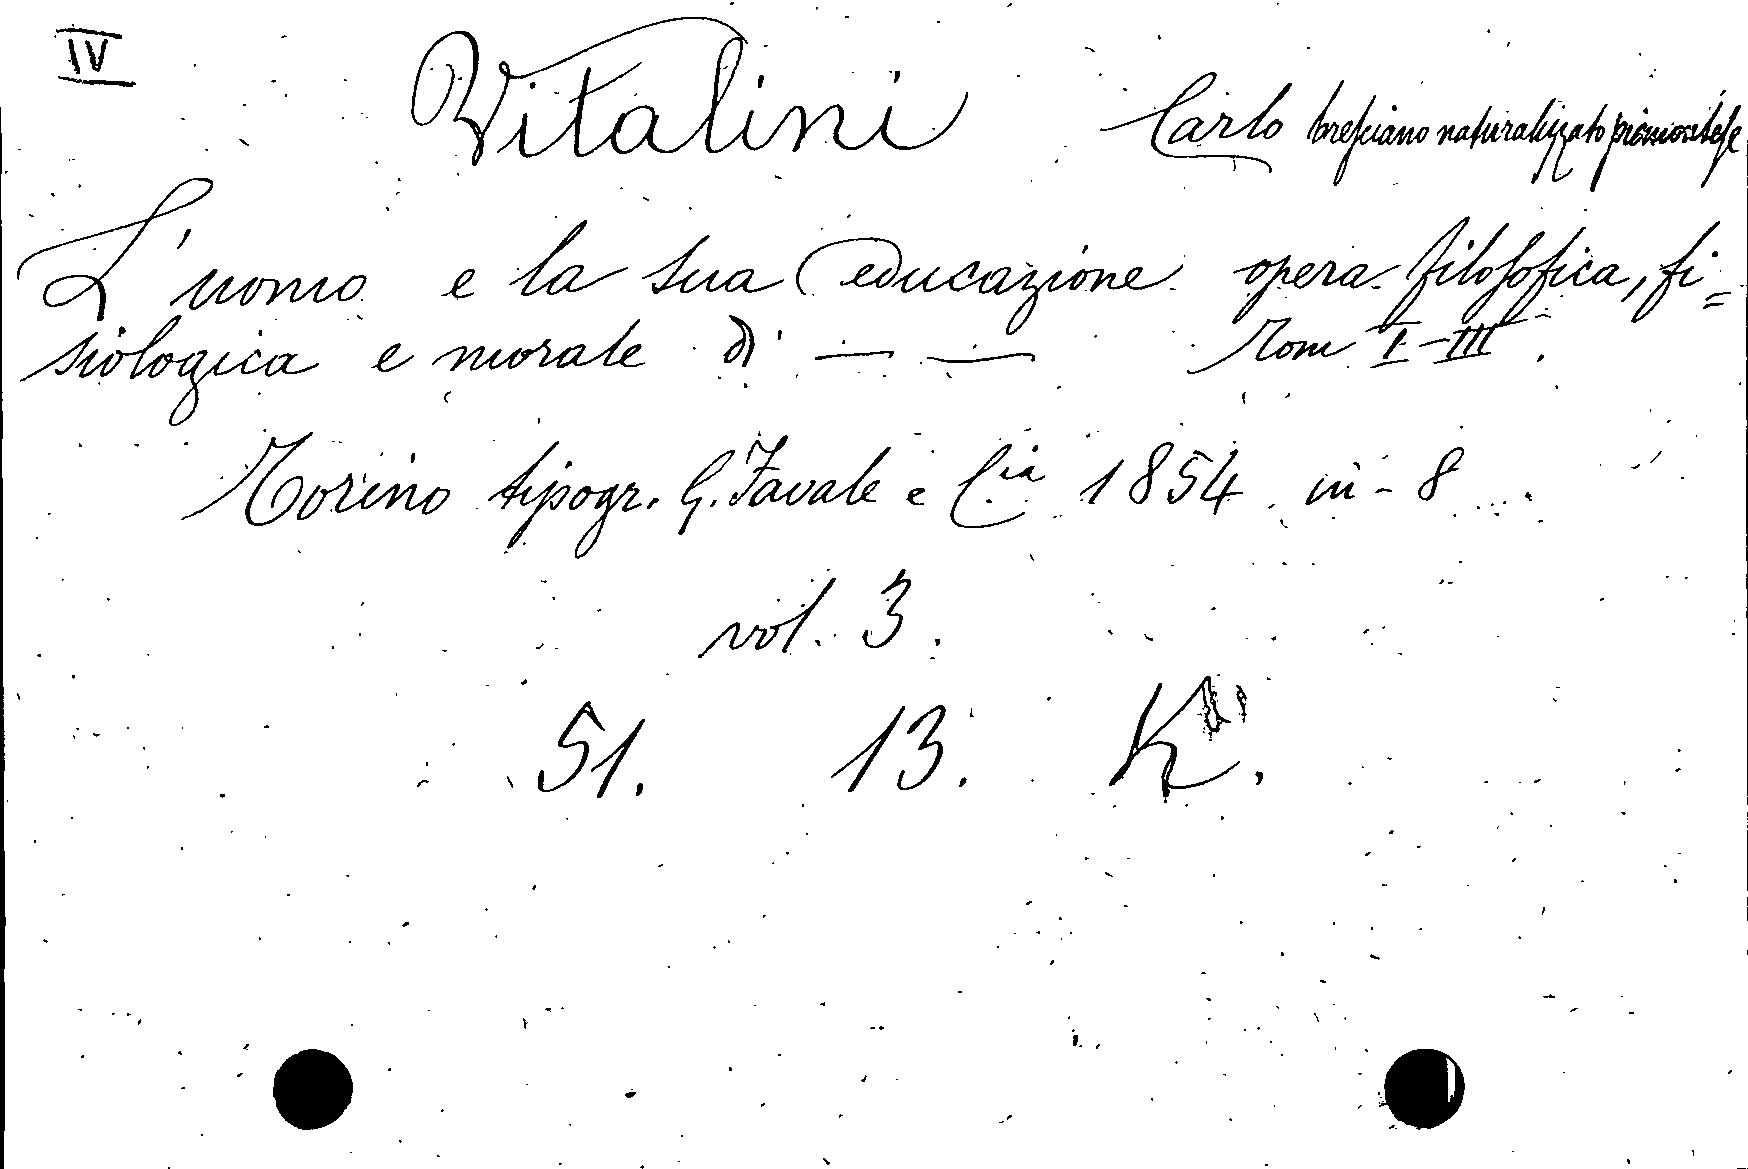 IV
Vitalini Carlo bresciano naturalizzato piemontese
L'uomo e la sua educazione opera filosofica, fi=
siologica e morale di — — Tom I-III.
Torino tipogr. G. Favale e C.ia 1854 in-8
vol. 3.
51. 13. K.